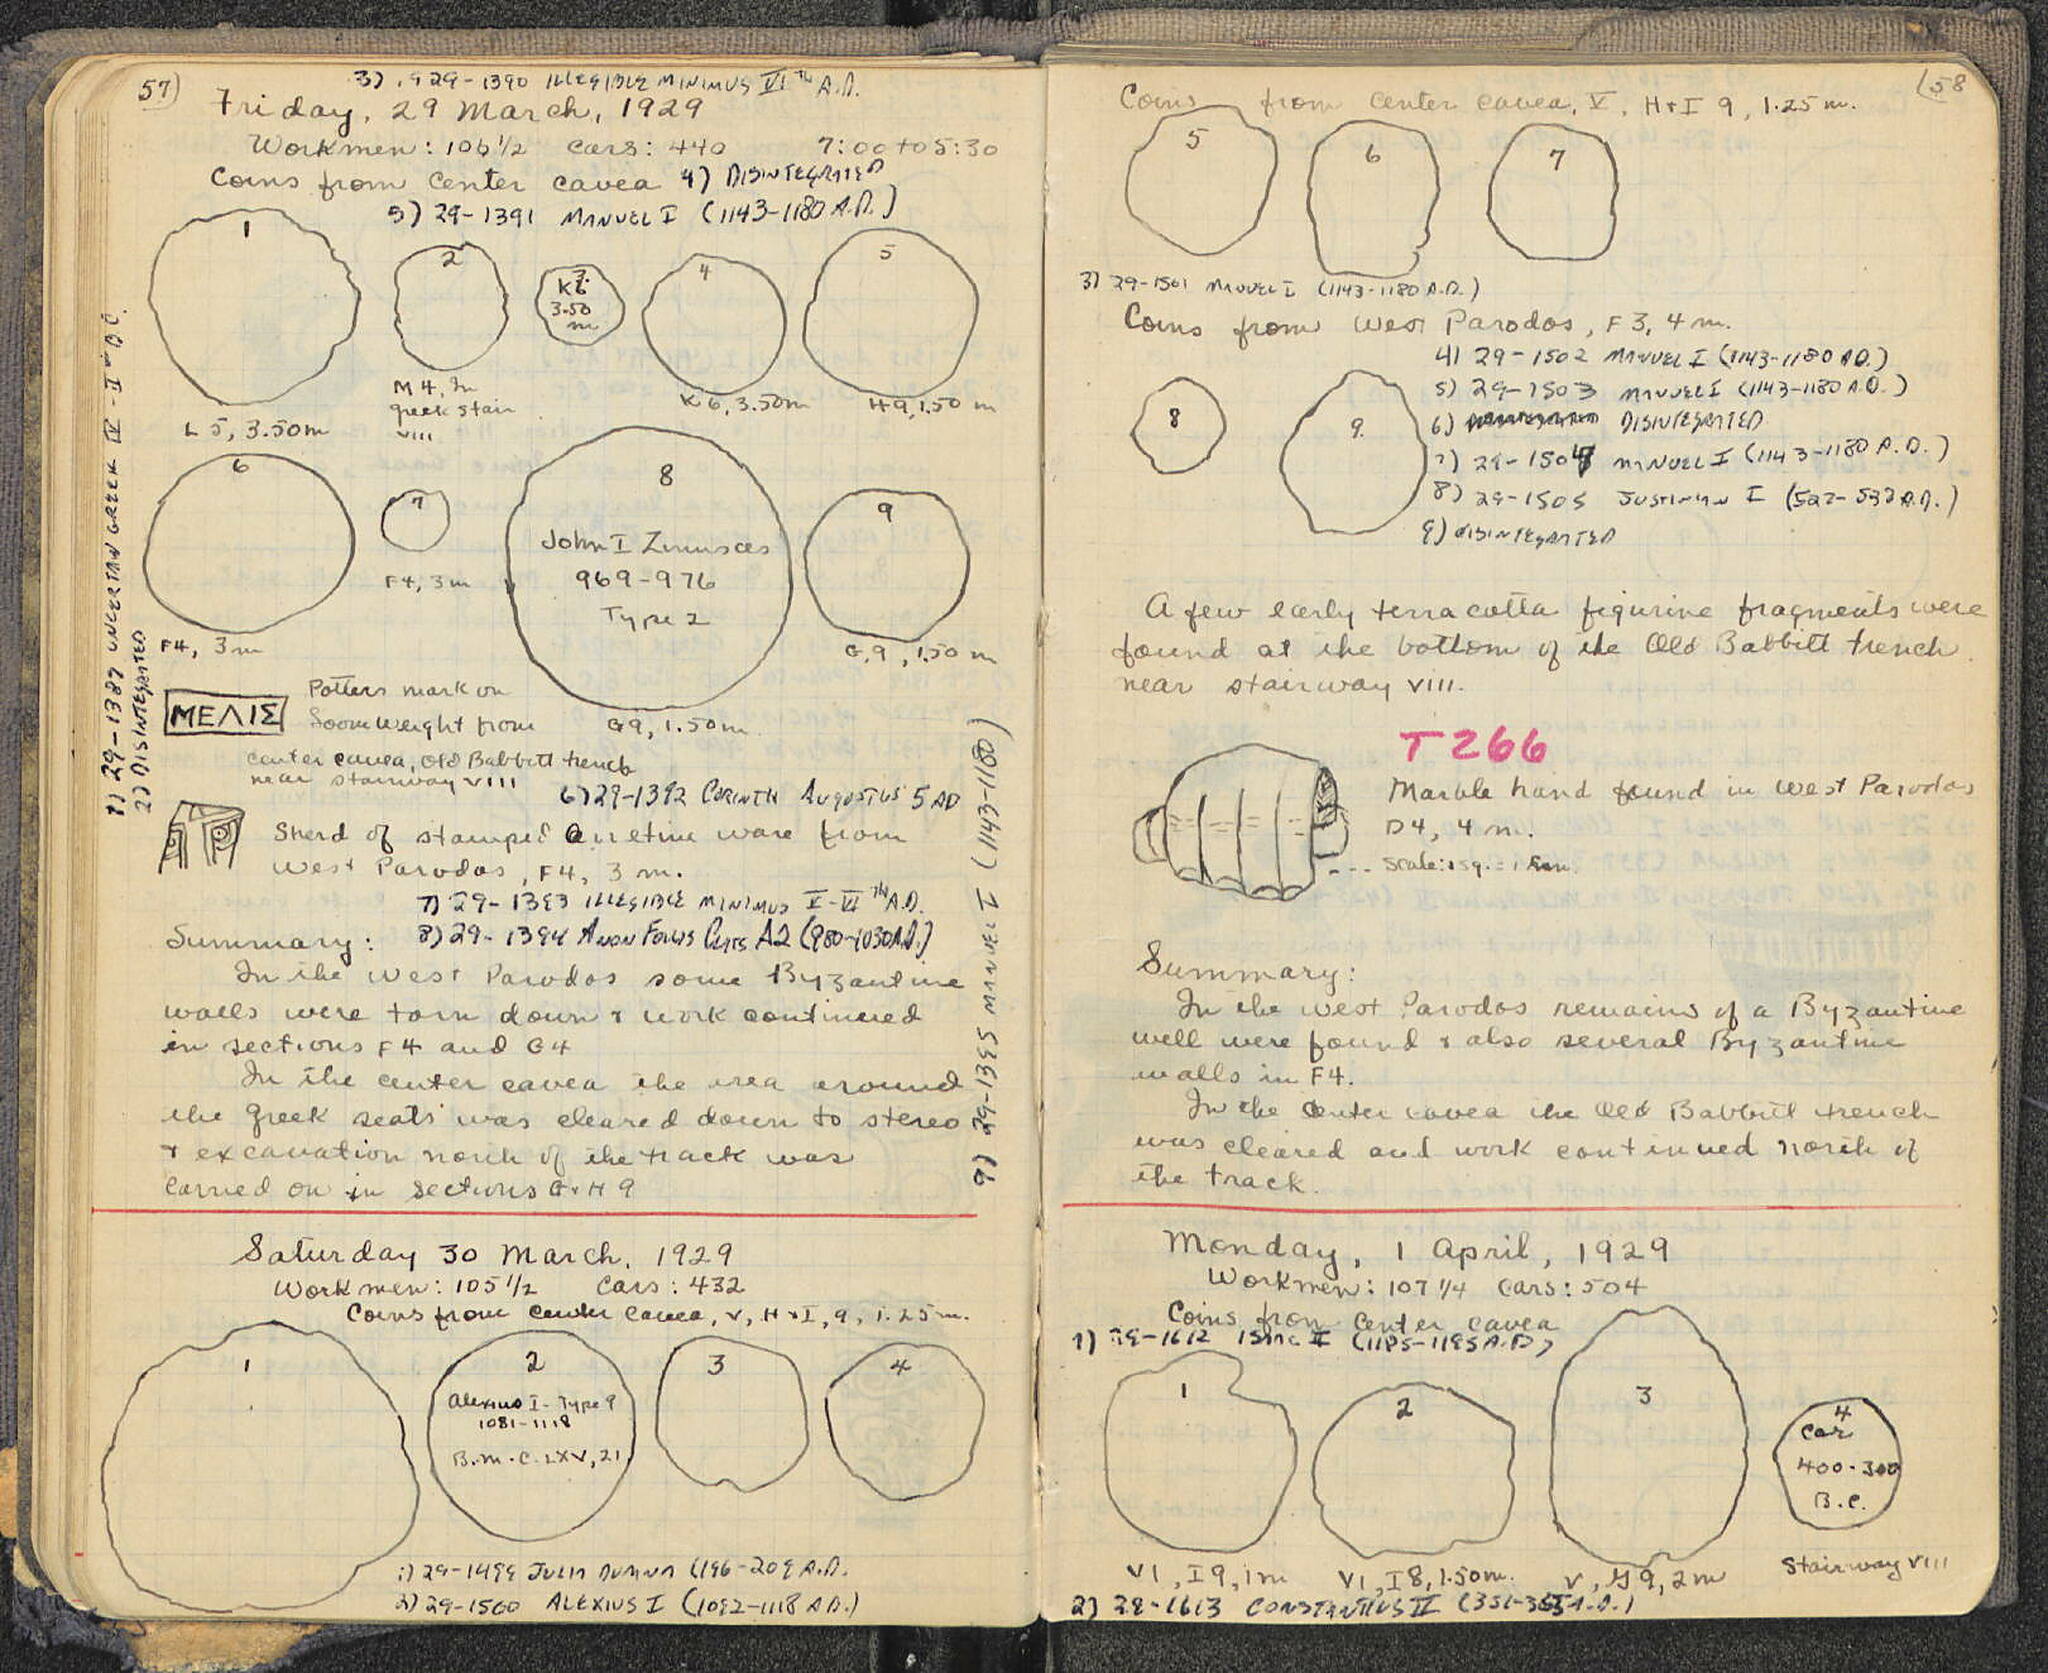 57)
3) . 929-1390 ILLEGIBLE MINIMUS VI TH A.D.
Friday, 29 March, 1929
Workmen: 106 1/2 Cars: 440 7:00 to 5:30
Coins from center cavea 4) DISINTEGRATED
5) 29-1391 MANUEL I (1143-1180 A.D.)
1
2
3
K6
3.50
m
4
5
L 5, 3.50 m
M 4, In
greek stair
VIII
K 6, 3.50 m
H 9, 1.50 m
6
7
8
John I Zimisces
969-976
Type 2
9
F4, 3 m
F4, 3 m
G, 9, 1.50 m
G9, 1.50 m
1) 29-1389 UNCERTAIN GREEK IV - II B.C.
2) DISINTEGRATED
ΜΕΛΙΣ
Potters mark on
loomweight from
center cavea, Old Babbitt trench
near stairway VIII
6) 29-1392 CORINTH AUGUSTUS 5 AD
Sherd of stamped Arretine ware from
West Parodos, F4, 3 m.
7) 29-1393 ILLEGIBLE MINIMUS V-VI TH A.D.
Summary: 8) 29-1394 ANON FOLLIS CLASS A2 (980-1030 A.D.)
9) 29-1395 MANUEL I (1143-1180)
In the West Parodos some Byzantine
walls were torn down & work continued
in sections F4 and G4
In the center cavea the area around
the greek seats was cleared down to stereo
& excavation north of the track was
carried on in sections G & H 9
Saturday 30 March, 1929
Workmen: 105 1/2 Cars: 432
Coins from center cavea, V, H & I, 9, 1.25 m.
1
2
Alexius I - Type 9
1081-1118
B.M.C. LXV, 21
3
4
1) 29-1499 JULIA DOMNA (196-209 A.D.
2) 29-1500 ALEXIUS I (1092-1118 A.D.)
(58
Coins from center cavea, V, H & I 9, 1.25 m.
5
6
7
3) 29-1501 MANUEL I (1143-1180 A.D.)
Coins from West Parodos, F 3, 4 m.
8
9.
4) 29-1502 MANUEL I (1143-1180 A.D.)
5) 29-1503 MANUEL I (1143-1180 A.D.)
6) DISINTEGRATED
7) 29-1504 MANUEL I (1143-1180 A.D.)
8) 29-1505 JUSTINIAN I (527-537 A.D.)
9) DISINTEGRATED
A few early terra cotta figurine fragments were
found at the bottom of the Old Babbitt trench
near stairway VIII.
T 266
Marble hand found in West Parodos
D4, 4 m.
Scale: 1 sq. = 1 cm.
Summary:
In the West Parodos remains of a Byzantine
well were found & also several Byzantine
walls in F4.
In the center cavea the Old Babbitt trench
was cleared and work continued north of
the track.
Monday, 1 April, 1929
Workmen: 107 1/4 Cars: 504
Coins from center cavea
1) 29-1612 ISAAC II (1185-1195 A.D)
1
2
3
4
Cor
400-300
B.C.
VI, I 9, 1 m
VI, I 8, 1.50 m.
V, G 9, 2 m
Stairway VIII
2) 29-1613 CONSTANTIUS II (351-355 A.D.)